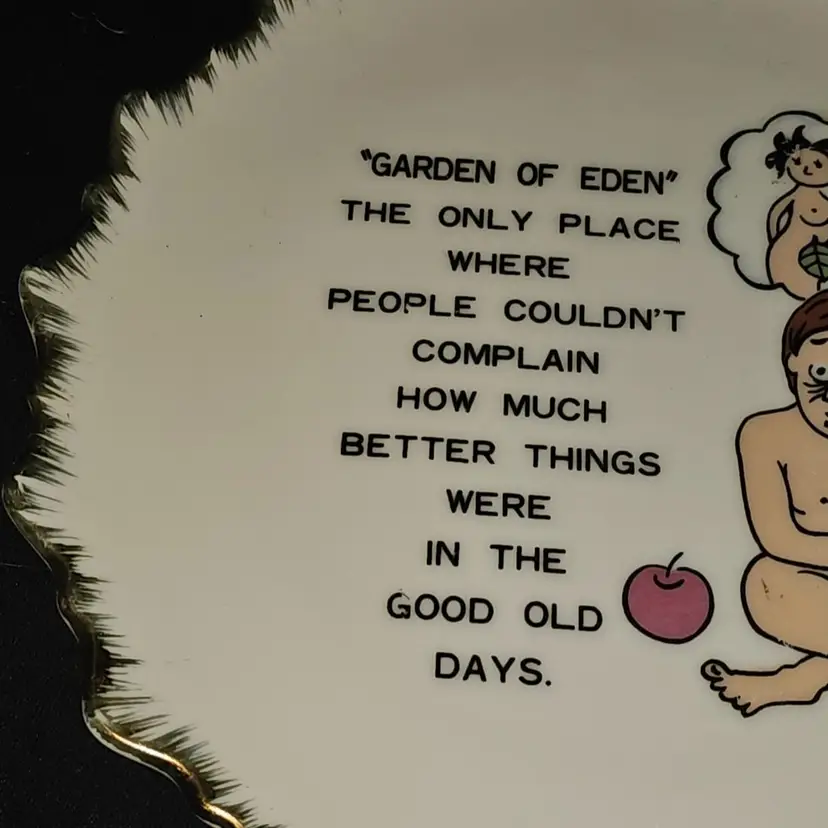 "GARDEN OF EDEN"
THE ONLY PLACE
WHERE
PEOPLE COULDN'T
COMPLAIN
HOW MUCH
BETTER THINGS
WERE
IN THE
GOOD OLD
DAYS.